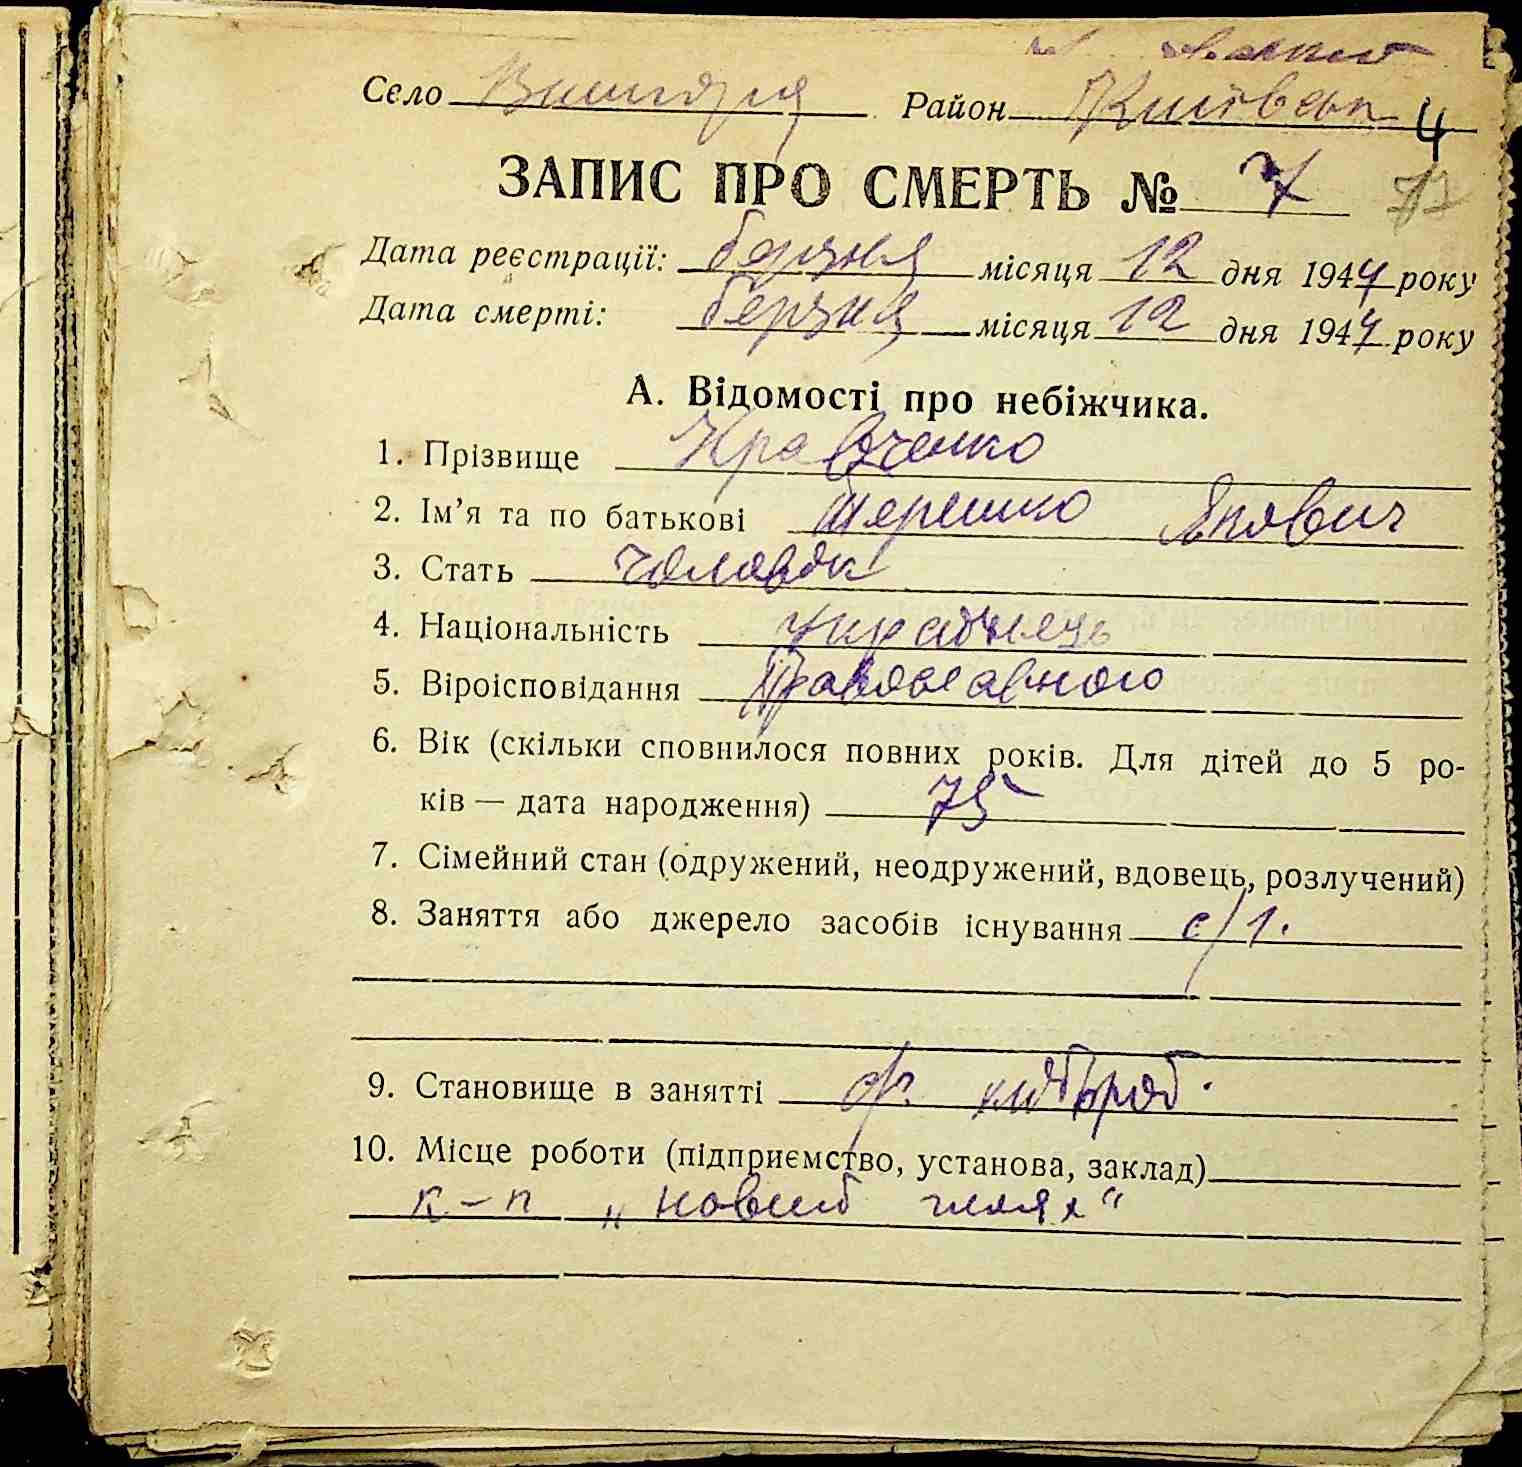 Село Вишгора Район Київськ 4
ЗАПИС ПРО СМЕРТЬ № 7
Дата реєстрації: березня місяця 12 дня 1944 року
Дата смерті: березня місяця 12 дня 1944 року
А. Відомості про небіжчика.
1. Прізвище Кравченко
2. Ім’я та по батькові Терешко Якович
3. Стать чоловік
4. Національність Українець
5. Віроісповідання Православною
6. Вік (скільки сповнилося повних років. Для дітей до 5 ро-
ків — дата народження) 75
7. Сімейний стан (одружений, неодружений, вдовець, розлучений)
8. Заняття або джерело засобів існування с/г.
9. Становище в занятті хлібороб.
10. Місце роботи (підприємство, установа, заклад)
к-п „новий шлях“